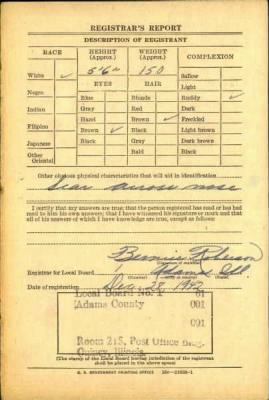 REGISTRAR'S REPORT
DESCRIPTION OF REGISTRANT
RACE
HEIGHT (Approx.)
WEIGHT (Approx.)
COMPLEXION
White ✓
5'6"
150
Sallow
EYES
HAIR
Light
Negro
Blue
Blonde
Ruddy ✓
Indian
Gray
Red
Dark
Hazel
Brown ✓
Freckled
Filipino
Brown ✓
Black
Light brown
Japanese
Black
Gray
Dark brown
Other
Bald
Black
Oriental
Other obvious physical characteristics that will aid in identification
Scar across nose
I certify that my answers are true; that the person registered has read or has had
read to him his own answers; that I have witnessed his signature or mark and that
all of his answers of which I have knowledge are true, except as follows:
Bernice Roberson
Registrar for Local Board 1 Adams Ill.
Date of registration Dec 28, 1942
Local Board No. 1 61
Adams County 001
001
Room 215, Post Office Bldg.
Quincy, Illinois
(The stamp of the Local Board having jurisdiction of the registrant
shall be placed in the above space)
U. S. GOVERNMENT PRINTING OFFICE